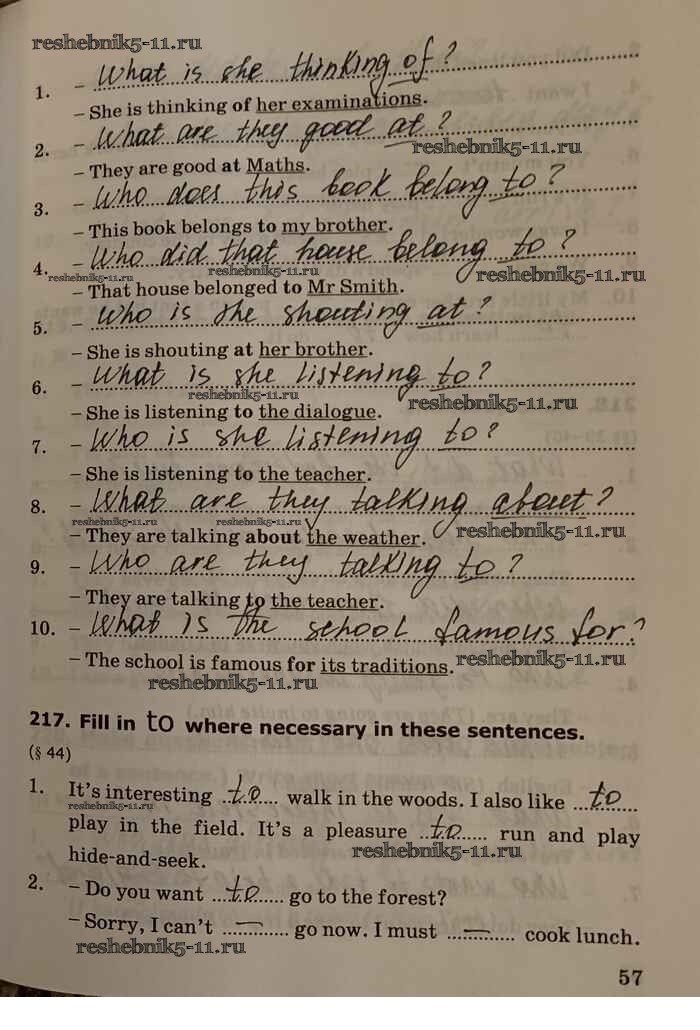 reshebnik5-11.ru
1. – What is she thinking of?
– She is thinking of her examinations.
2. – What are they good at?
reshebnik5-11.ru
– They are good at Maths.
3. – Who does this book belong to?
– This book belongs to my brother.
4. – Who did that house belong to?
reshebnik5-11.ru reshebnik5-11.ru reshebnik5-11.ru
– That house belonged to Mr Smith.
5. – Who is she shouting at?
– She is shouting at her brother.
6. – What is she listening to?
reshebnik5-11.ru reshebnik5-11.ru
– She is listening to the dialogue.
7. – Who is she listening to?
– She is listening to the teacher.
8. – What are they talking about?
reshebnik5-11.ru reshebnik5-11.ru reshebnik5-11.ru
– They are talking about the weather.
9. – Who are they talking to?
– They are talking to the teacher.
10. – What is the school famous for?
– The school is famous for its traditions.
reshebnik5-11.ru
reshebnik5-11.ru
217. Fill in to where necessary in these sentences.
(§ 44)
1. It's interesting to walk in the woods. I also like to
reshebnik5-11.ru
play in the field. It's a pleasure to run and play
reshebnik5-11.ru
hide-and-seek.
2. – Do you want to go to the forest?
– Sorry, I can't — go now. I must — cook lunch.
reshebnik5-11.ru
57